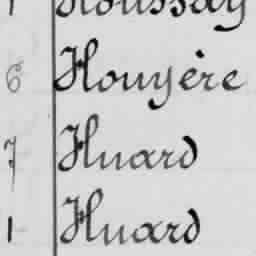 1 Houssay
6 Houyère
7 Huard
1 Huard